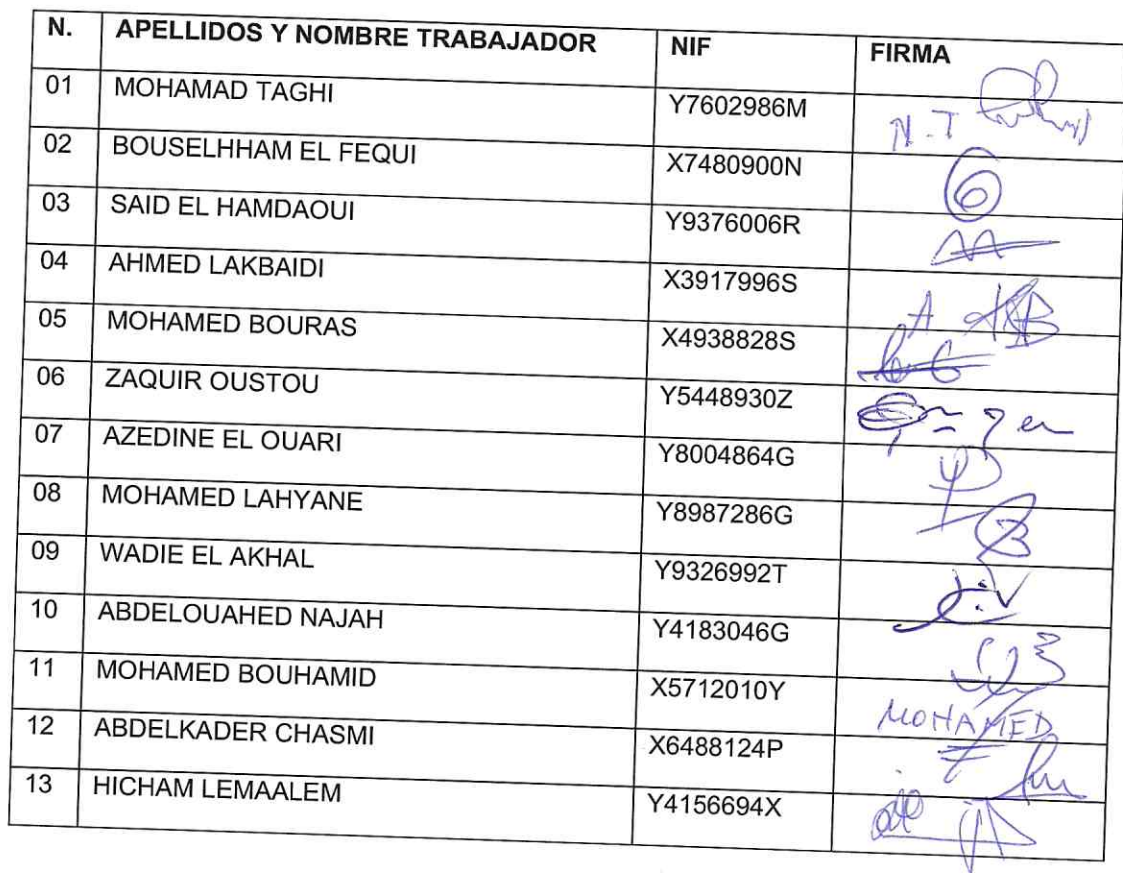 N. APELLIDOS Y NOMBRE TRABAJADOR NIF FIRMA
01 MOHAMAD TAGHI Y7602986M N.T
02 BOUSELHHAM EL FEQUI X7480900N
03 SAID EL HAMDAOUI Y9376006R
04 AHMED LAKBAIDI X3917996S
05 MOHAMED BOURAS X4938828S
06 ZAQUIR OUSTOU Y5448930Z
07 AZEDINE EL OUARI Y8004864G
08 MOHAMED LAHYANE Y8987286G
09 WADIE EL AKHAL Y9326992T
10 ABDELOUAHED NAJAH Y4183046G
11 MOHAMED BOUHAMID X5712010Y MOHAMED
12 ABDELKADER CHASMI X6488124P
13 HICHAM LEMAALEM Y4156694X